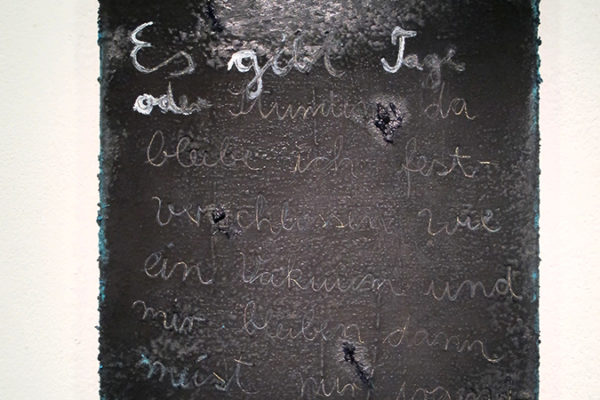 Es gibt Tage
oder da
bleibe ich fest
verschlossen wie
ein Vakuum und
mir bleiben dann
meist nur